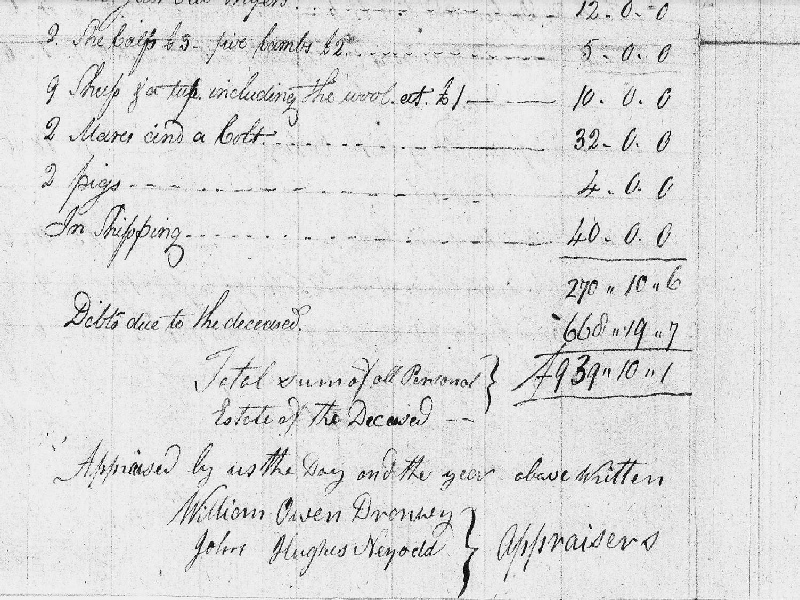 12. 0. 0
2 She Calfs £3 - five Lambs £2 5. 0. 0
9 Sheep & a tup including the wool at £1 10. 0. 0
2 Mares and a Colt 32. 0. 0
2 pigs 4. 0. 0
In Shipping 40. 0. 0
270 " 10 " 6
Debts due to the deceased. 668 " 19 " 7
Total sum of all Personal } 939 " 10 " 1
Estate of the Deceased
Appraised by us the Day and the year above written
William Owen Dronwy }
John Hughes } Appraisers